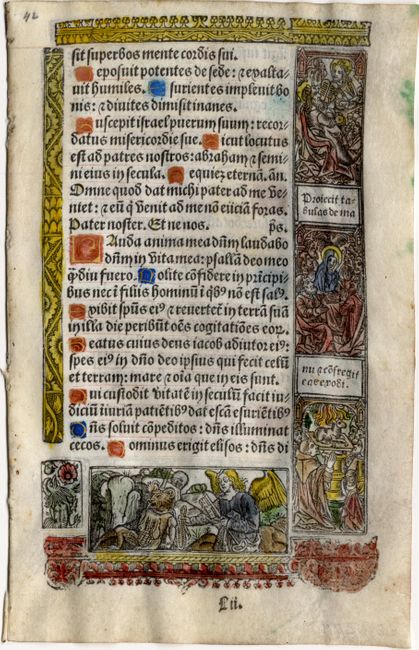 42
sit superbos mente cordis sui.
Deposuit potentes de sede: ⁊ exalta-
uit humiles. Esurientes impleuit bo
nis: ⁊ diuites dimisit inanes.
Suscepit israel puerum suum: recor-
datus misericordie sue. Sicut locutus
est ad patres nostros: abraham ⁊ semi-
ni eius in secula. Requiez eternā. añ.
Omne quod dat michi pater ad me ve-
niet: ⁊ eū q̄ venit ad me nō eiiciā foras.
Pater noster. Et ne nos. p̄s.
Lauda anima mea dn̄m laudabo
dn̄m in vita mea: psallā deo meo
q̄diu fuero. Nolite cōfidere in prīcipi
bus nec ī filiis hominū ī qꝰbꝰ nō est salꝰ.
Exibit spūs eiꝰ ⁊ reuertet̄ in terrā suā
in illa die peribūt oēs cogitatiōes eoꝝ.
Beatus cuius deus iacob adiutor eiꝰ:
spes eiꝰ in dn̄o deo ipsius qui fecit celū
et terram: mare ⁊ oīa que in eis sunt.
Qui custodit vitatē in seculū facit iu-
diciū īiuriā patiētibꝰ dat escā esuriētibꝰ
Dn̄s soluit cōpeditos: dn̄s illuminat
cecos. Dominus erigit elisos: dn̄s di
Proiecit ta-
bulas de ma
nu ⁊ cōfregit
eas exodi.
Lii.